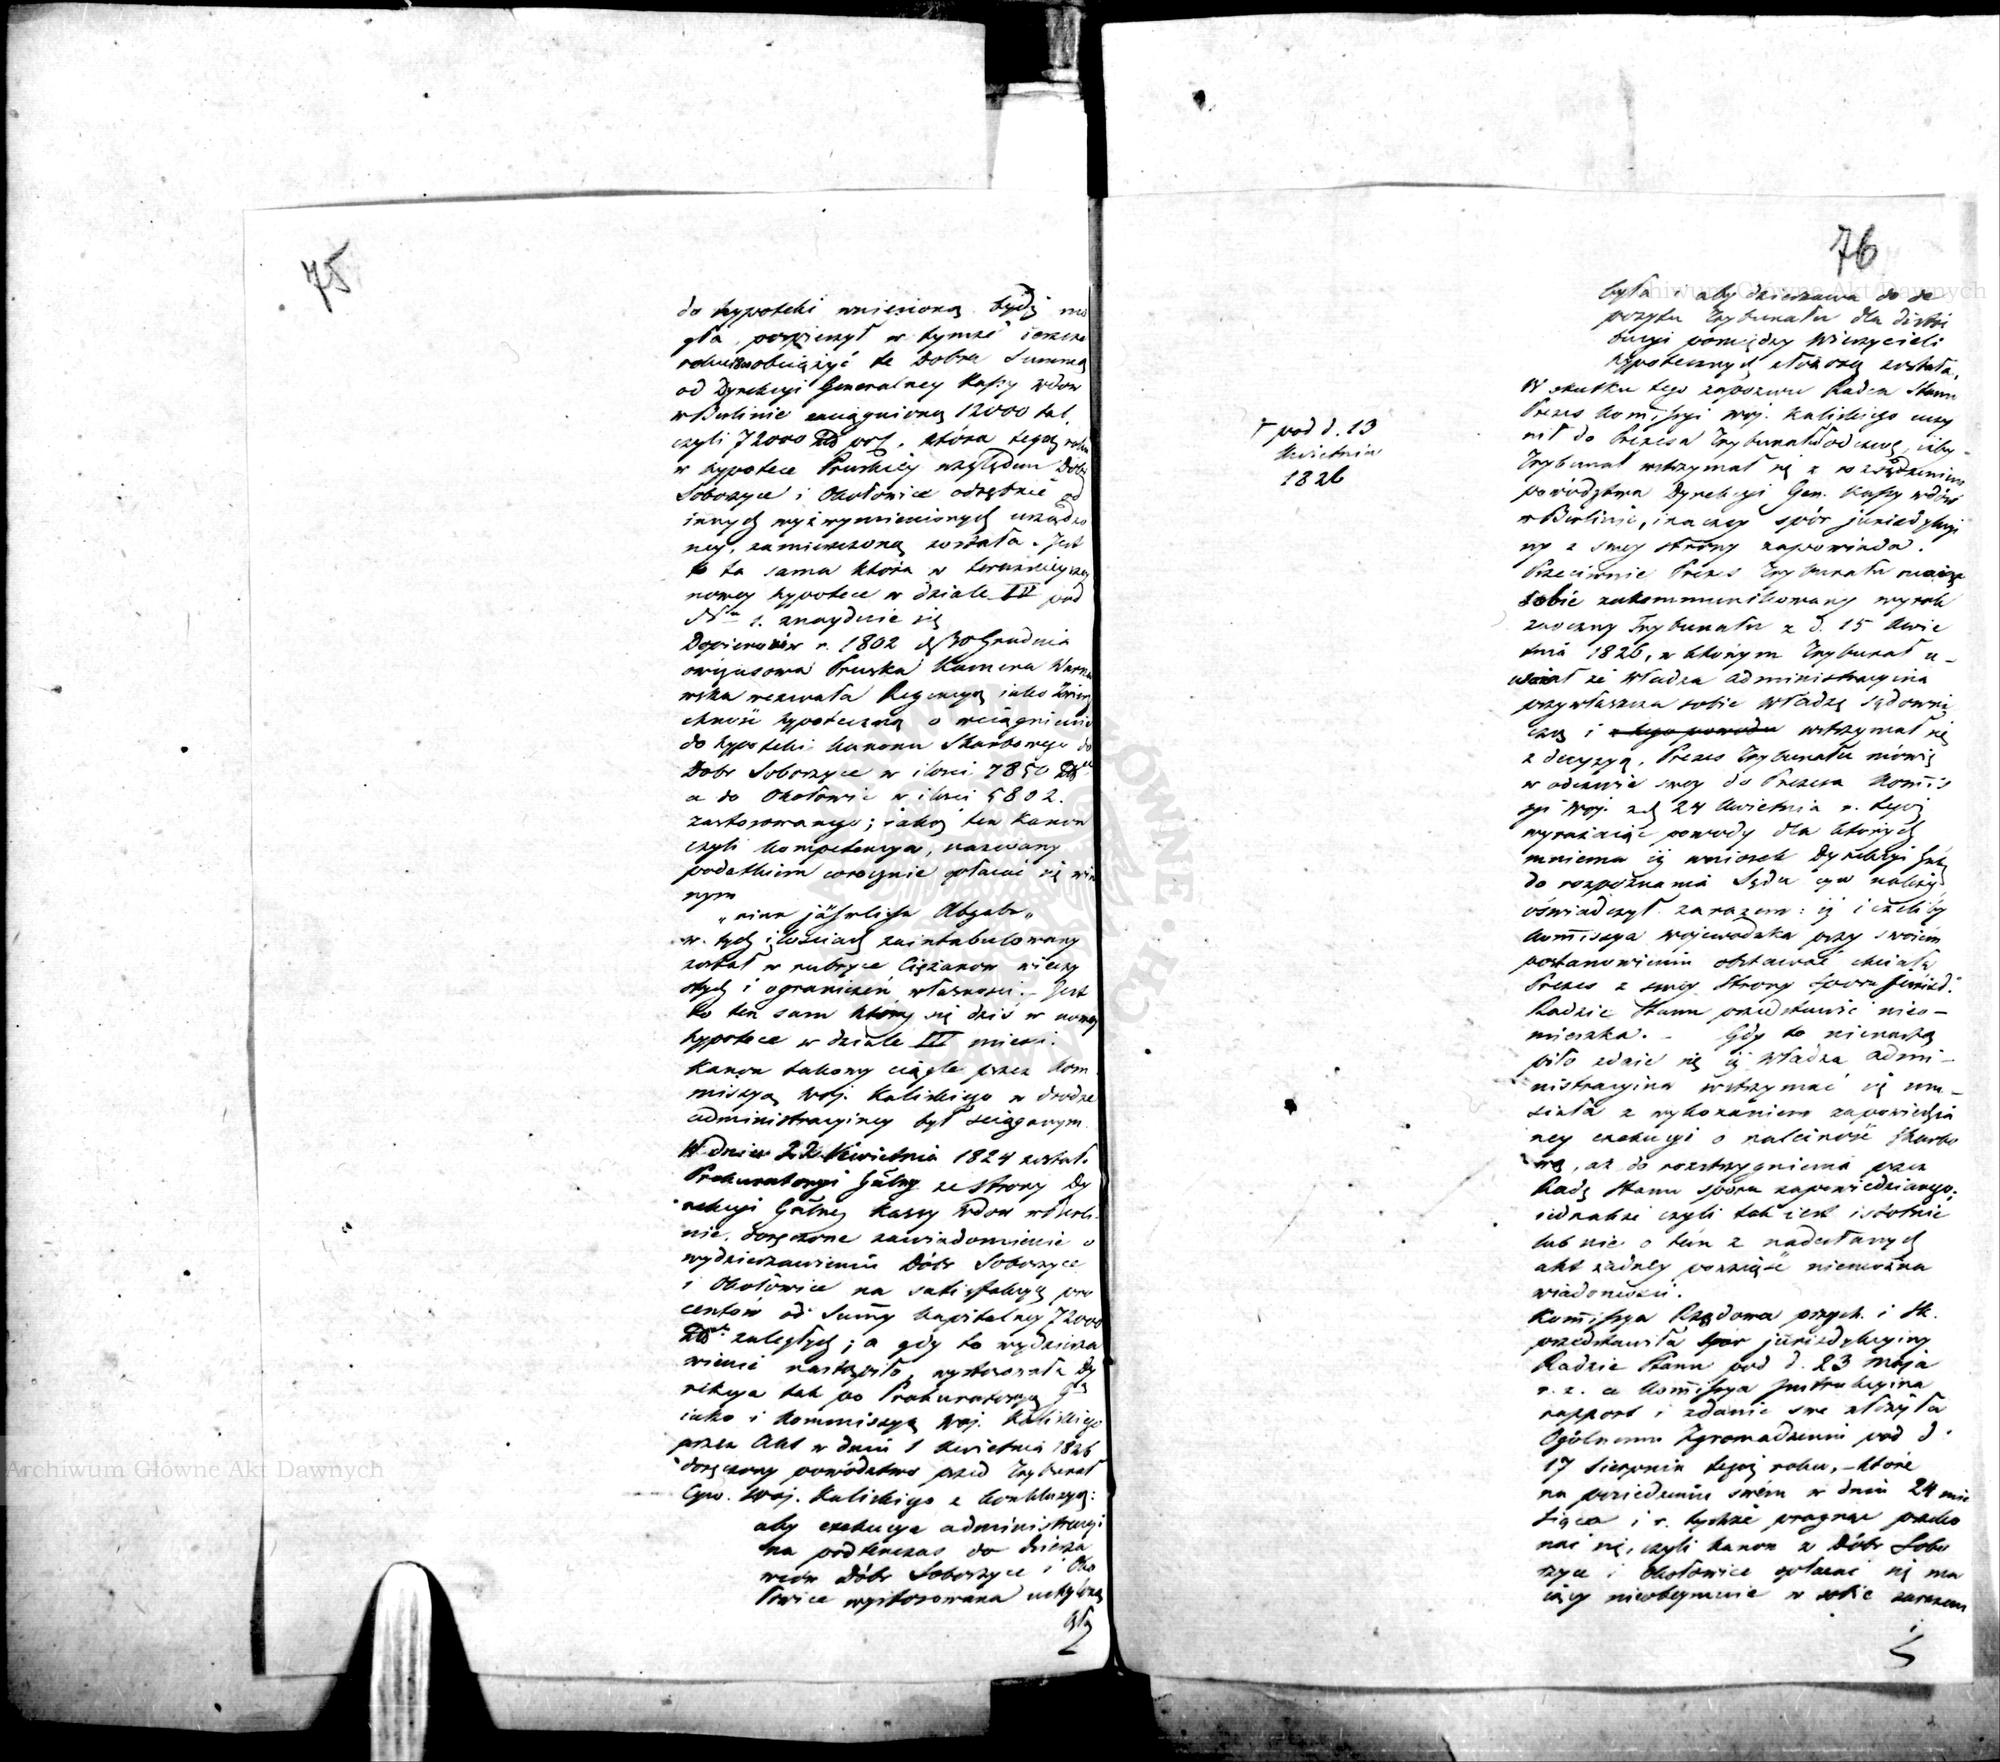 75
do hypoteki wniesioną bydź mo
gła, pospieszył w tymże ieszcze
roku obciążyć te Dobra Summą
od Dyrekcyi Generalney Kassy wdow
w Berlinie zaciągnioną 12000 tal.
czyli 72000 Zł pol. która tegoż roku
w hypotece Pruskiey względem Dóbr
Soborzyce i Okołowice odrębnie od
innych wyż wymienionych urządzo
ney, zamieszczoną została. Jest
to ta sama która w teraźnieyszey
nowey hypotece w dziale IV pod
N 1. znayduie się
Dopiero w r. 1802 d 30 Grudnia
Pruska Kamera Warsza
wska wezwała Regencyą iako Zwierz
chność hypoteczną o wciągnienie
do hypoteki kanonu Skarbowego do
Dobr Soborzyce w ilości 7850 Zł
a do Okołowic w ilości 5802.
zastosowanego; iakoż ten Kanon
czyli Kompetencya, nazwany
podatkiem corocznie opłacać się win
nym
„eine jährliche Abgabe„
w tych ilościach zaintabulowany
został w rubryce Ciężarow wieczy
stych i ograniczeń własności. – Jest
to ten sam który się dziś w nowey
hypotece w dziale III mieści.
Kanon takowy ciągle przez Kom
missyą Woj. Kaliskiego w drodze
administracyiney był ściąganym.
W dniu 22 Kwietnia 1824 zostało
Prokuratoryi Gāłney ze strony Dy
rekcyi Gāłney Kassy Wdow w Berli
nie, doręczone zawiadomienie o
wydzierzawieniu Dóbr Soborzyce
i Okołowice na satisfakcyą pro
centów od Summy kapitalney 72000
Zł zaległych; a gdy to wydzierza
wienie nastąpiło, wystosowała Dy
rekcya tak po Prokuratoryą
iako i Kommissyą Woj. Kaliskiego
przez Akt w dniu 1 Kwietnia 1826
doręczony powództwo przed Trybunał
Cyw. Woj. Kaliskiego z konkluzyą:
aby exekucya administracyi
na podtenczas do dzierża
wców Dóbr Soborzyce i Oko
łowice wystosowana uchyloną
76
była i aby dzierzawa do de
pozytu Trybunału dla distri
bucyi pomiędzy Wierzycieli
hypotecznych złożoną została.
W skutku tego zapozwu Radca Stanu
Prezes Kom̄issyi Woj. Kaliskiego uczy
nił do Prezesa Trybunału odezwę, iżby
Trybunał wstrzymał się z rozsądzeniem
powództwa Dyrekcyi Gen. Kassy wdów
w Berlinie, inaczey spór jurisdykcyi
ny z swey strony zapowiada.
Przeciwnie Prezes Trybunału maiąc
sobie zakommunikowany wyrok
zaoczny Trybunału z d. 15 Kwie
tnia 1826, w którym Trybunał u–
że Władza administracyina
przywłaszcza sobie Władzę Sądowni
czą i z tego powodu wstrzymał się
z decyzyą, Prezes Trybunału mówię
w odezwie swey do Prezesa Kom̄is
syi Woj. z d 24 Kwietnia r. tegoż
wyrażaiąc powody dla których
mniema iż wniosek Dyrekcyi
do rozpoznania Sądu cyw należy
oświadczył zarazem: iż ieżeliby
Kom̄issya Wojewodzka przy swoiem
postanowieniu obstawać chciała
Prezes z swey Strony Sporu Jurisd.
Radzie Stanu przedstawić nieo–
mieszka. – Gdy to nienastą
piło zdaie się iż Władza admi–
nistracyina wstrzymać się mu–
siała z wykonaniem zapowiedzia
ney exekucyi o należność skarbo
wą, aż do rozstrzygnienia przez
Radę Stanu sporu zapowiedzianego;
iednakże czyli tak iest istotnie
lub nie o tem z nadesłanych
akt żadney powziąść niemożna
wiadomości.
Kom̄issya Rządowa przych. i Sk.
przedstawiła spor jurisdykcyiny
Radzie Stanu pod d. 23 Maja
r. z. a Kom̄issya Instrukcyina
rapport i zdanie swe złożyła
Ogólnemu Zgromadzeniu pod d.
17 Sierpnia tegoż roku, – które
na posiedzeniu swém w dniu 24 mie
siąca i r. tychże pragnąc przeko
nać się, czyli kanon z Dóbr Sobo
rzyce i Okołowice opłacać się ma
iący nieobeymuie w sobie zarazem
pod d. 13
Kwietnia
1826